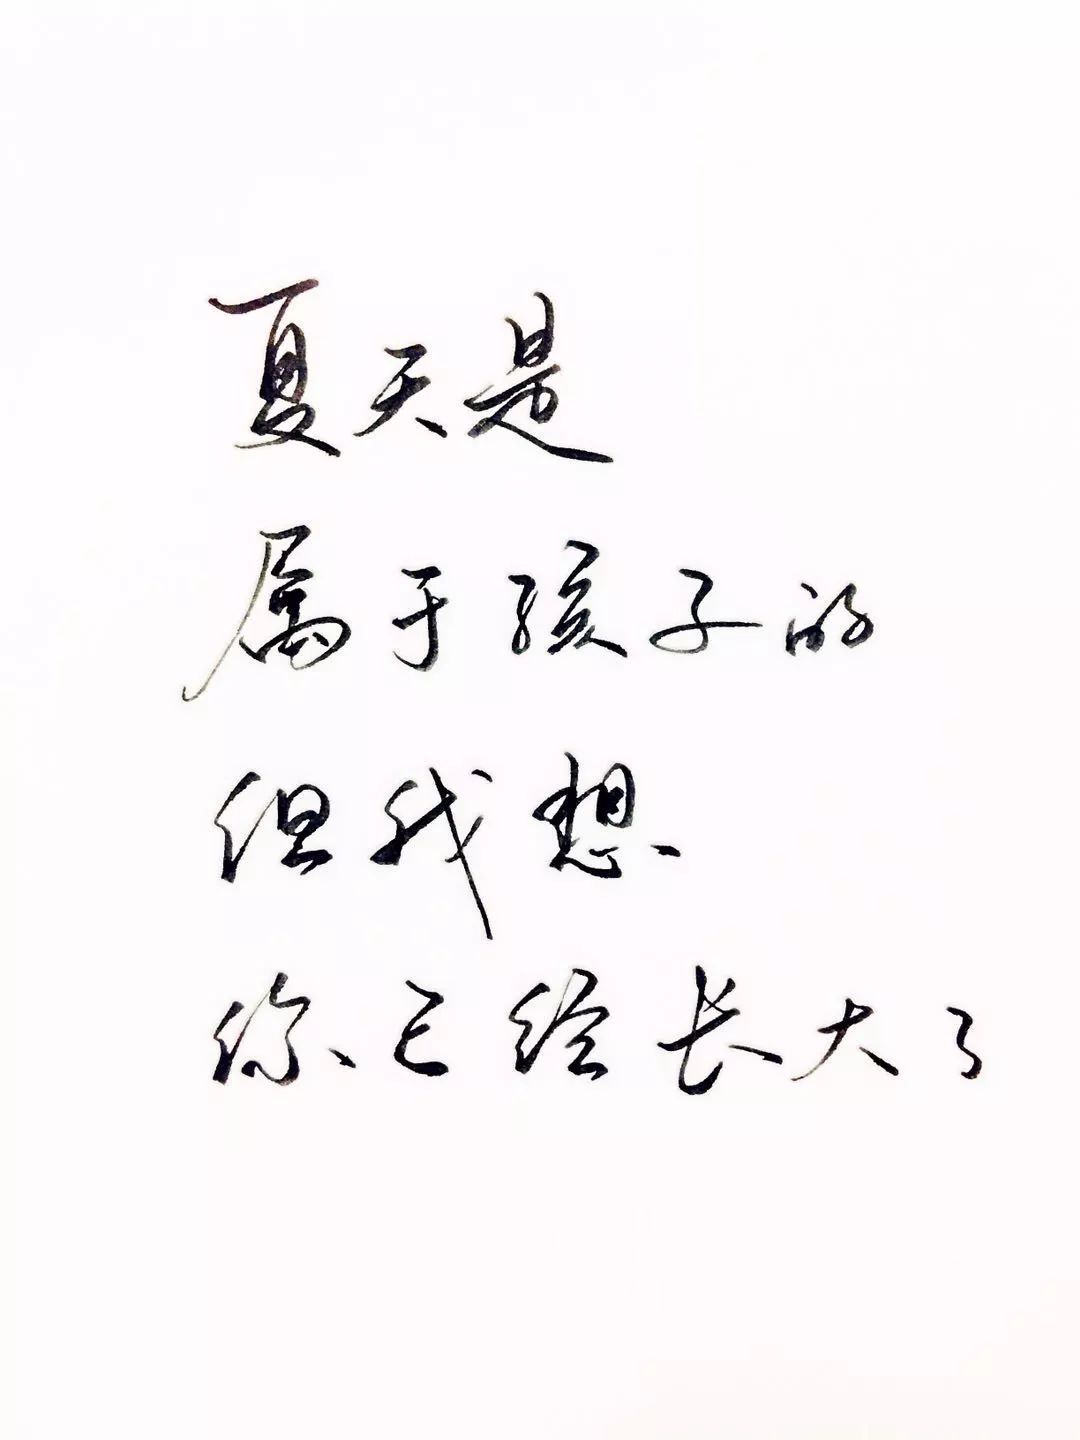 夏天是
属于孩子的
但我想
你已经长大了